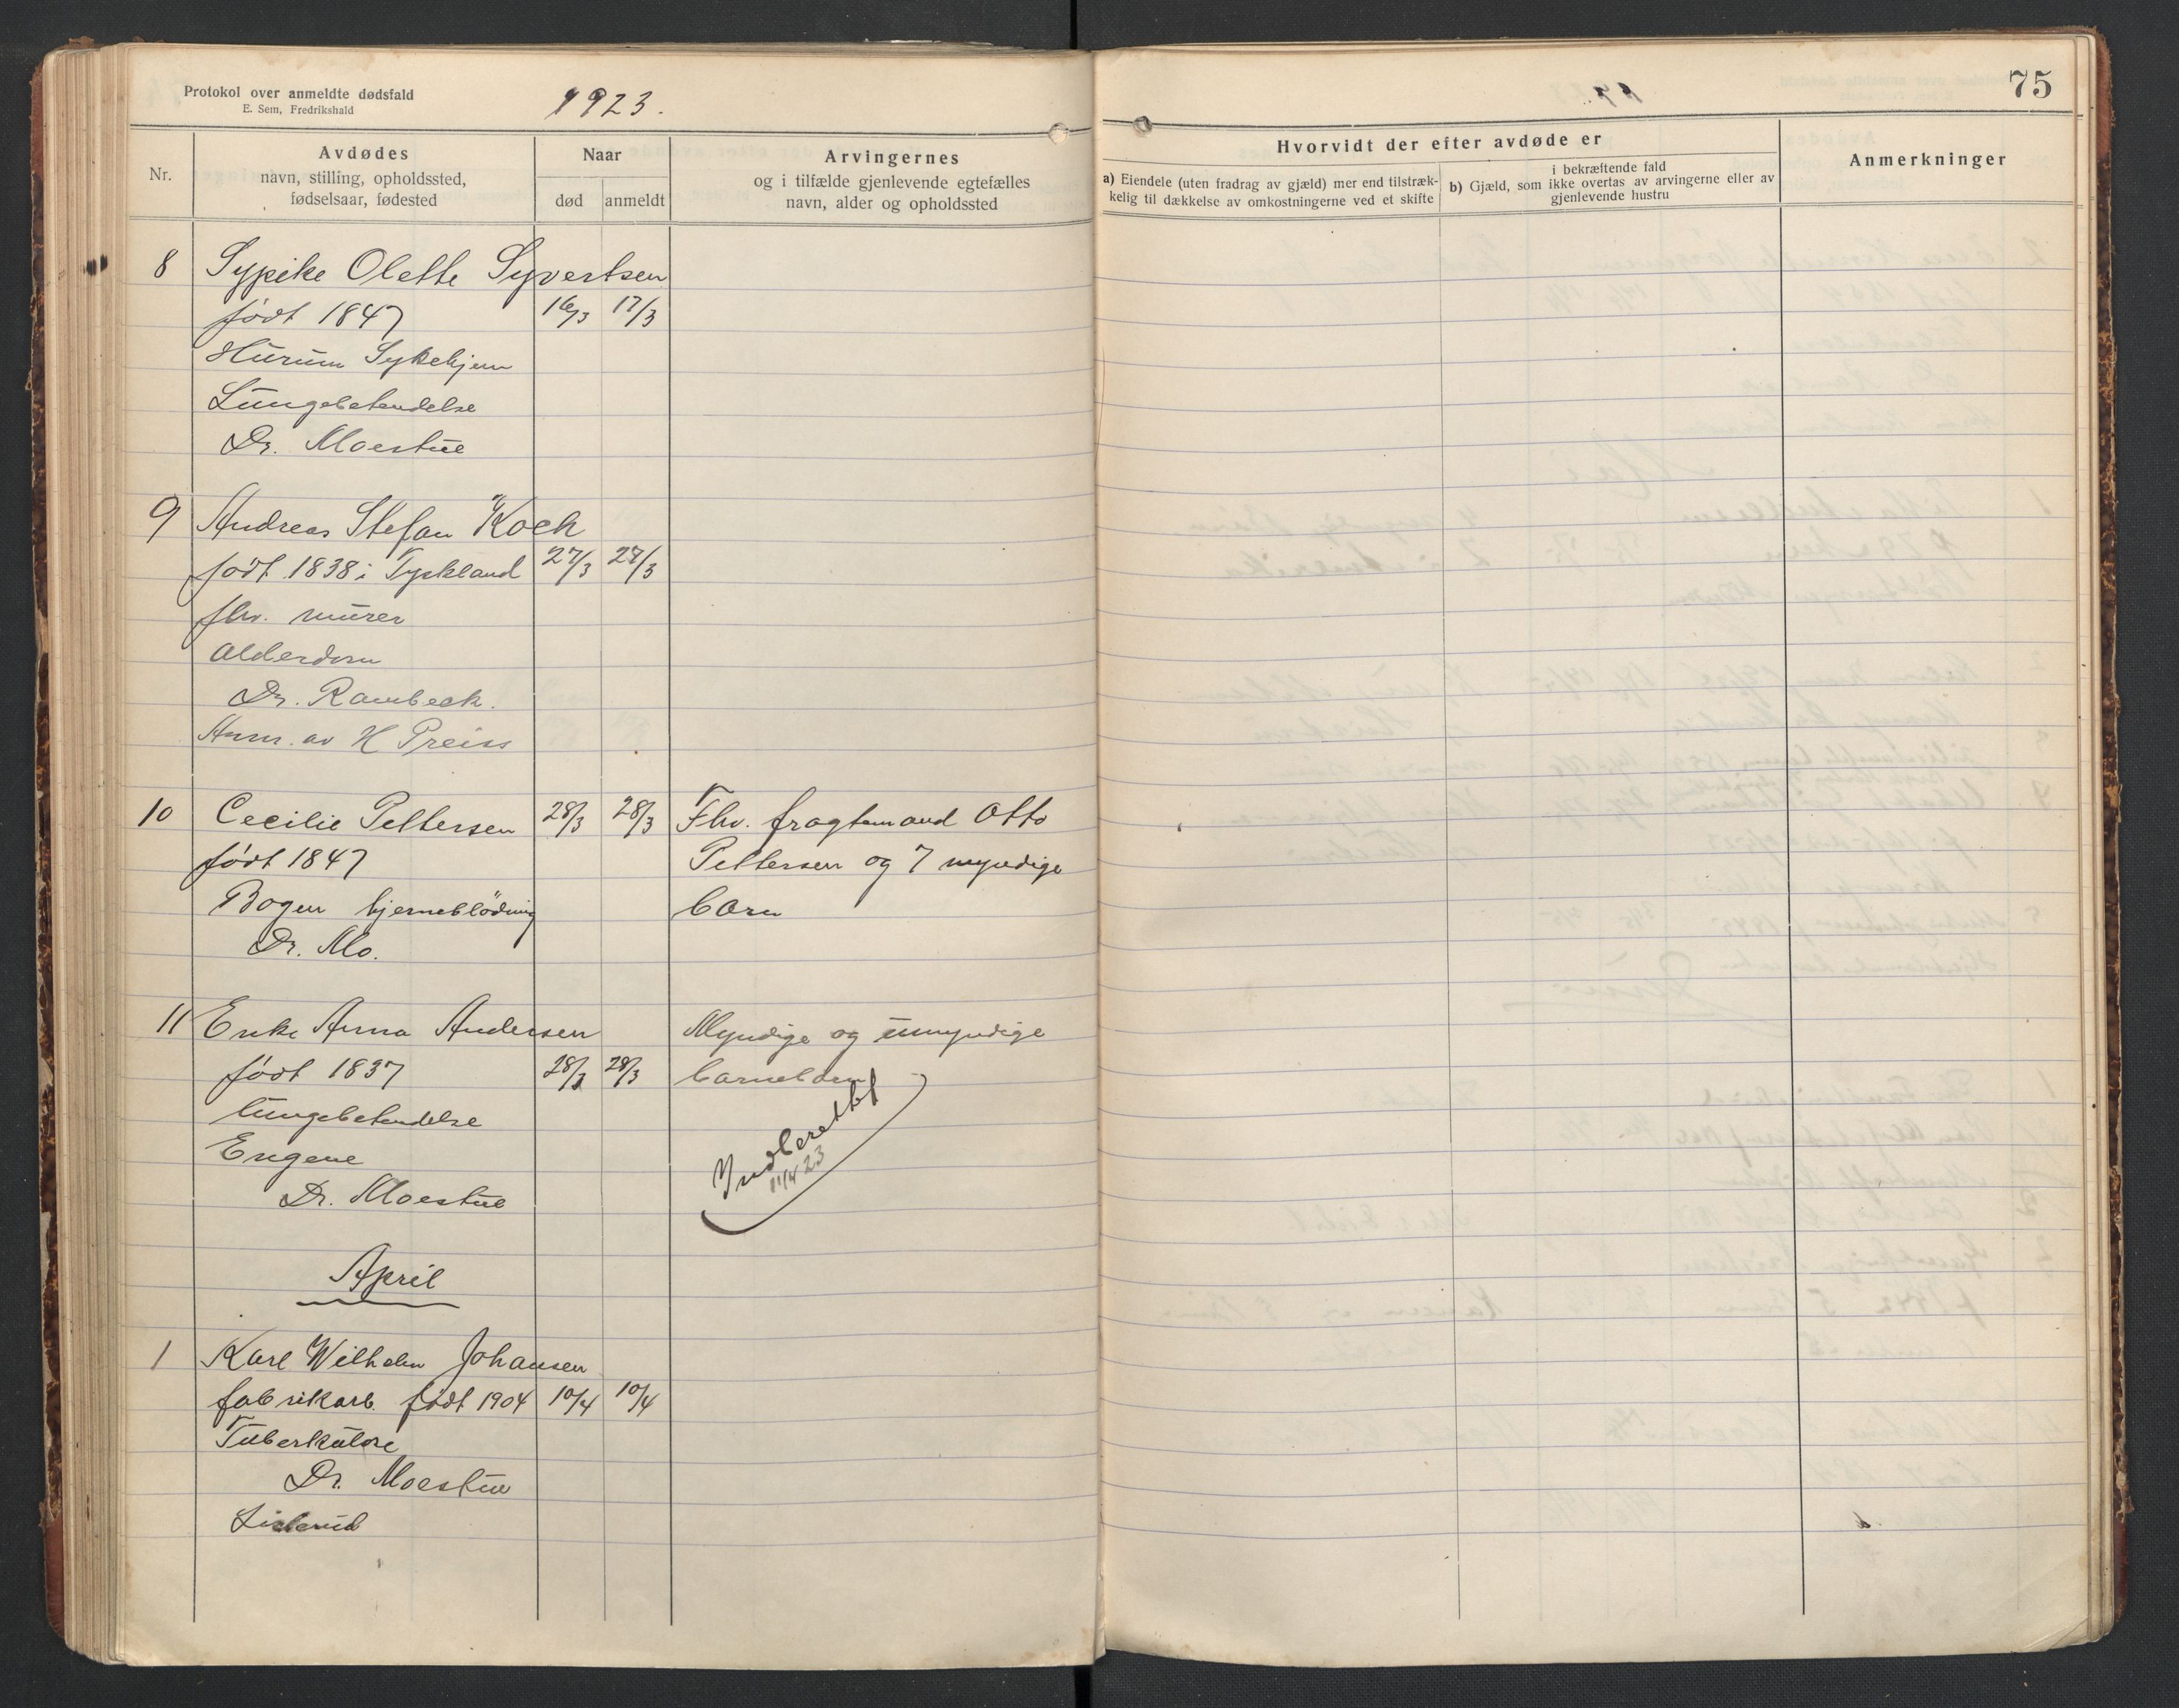 Protokol over anmeldte dødsfald
E. Sem, Fredrikshald
1923.
Nr.
Avdødes
navn, stilling, opholdssted,
fødselsaar, fødested
Naar
død
anmeldt
Arvingernes
og i tilfælde gjenlevende egtefælles
navn, alder og opholdssted
8 Sypike Olette Syvertsen
født 1847 16/3 17/3
Hurum Sykehjem
Lungebetendelse
Dr. Moestue
9 Andreas Stefan Koch
født 1838 i Tyskland 27/3 27/3
fhv. murer
Alderdom
Dr. Rambeck.
Anm. av H Preiss
10 Cecilie Pettersen 28/3 28/3 Fhv. fragtemand Otto
født 1847 Pettersen og 7 myndige
Bogen hjerneblödning barn
Dr. Mo.
11 Enke Anna Andersen Myndige og umyndige
født 1837 28/3 28/3 barnebarn
lungebetendelse
Engene
Dr. Moestue
Indberettet
11/4 23
April
1 Karl Wilhelm Johansen
fabrikarb. født 1904 10/4 10/4
Tuberkulose
Dr. Moestue
75
Hvorvidt der efter avdøde er
a) Eiendele (uten fradrag av gjæld) mer end tilstræk-
kelig til dækkelse av omkostningerne ved et skifte
i bekræftende fald
b) Gjæld, som ikke overtas av arvingerne eller av
gjenlevende hustru
Anmerkninger